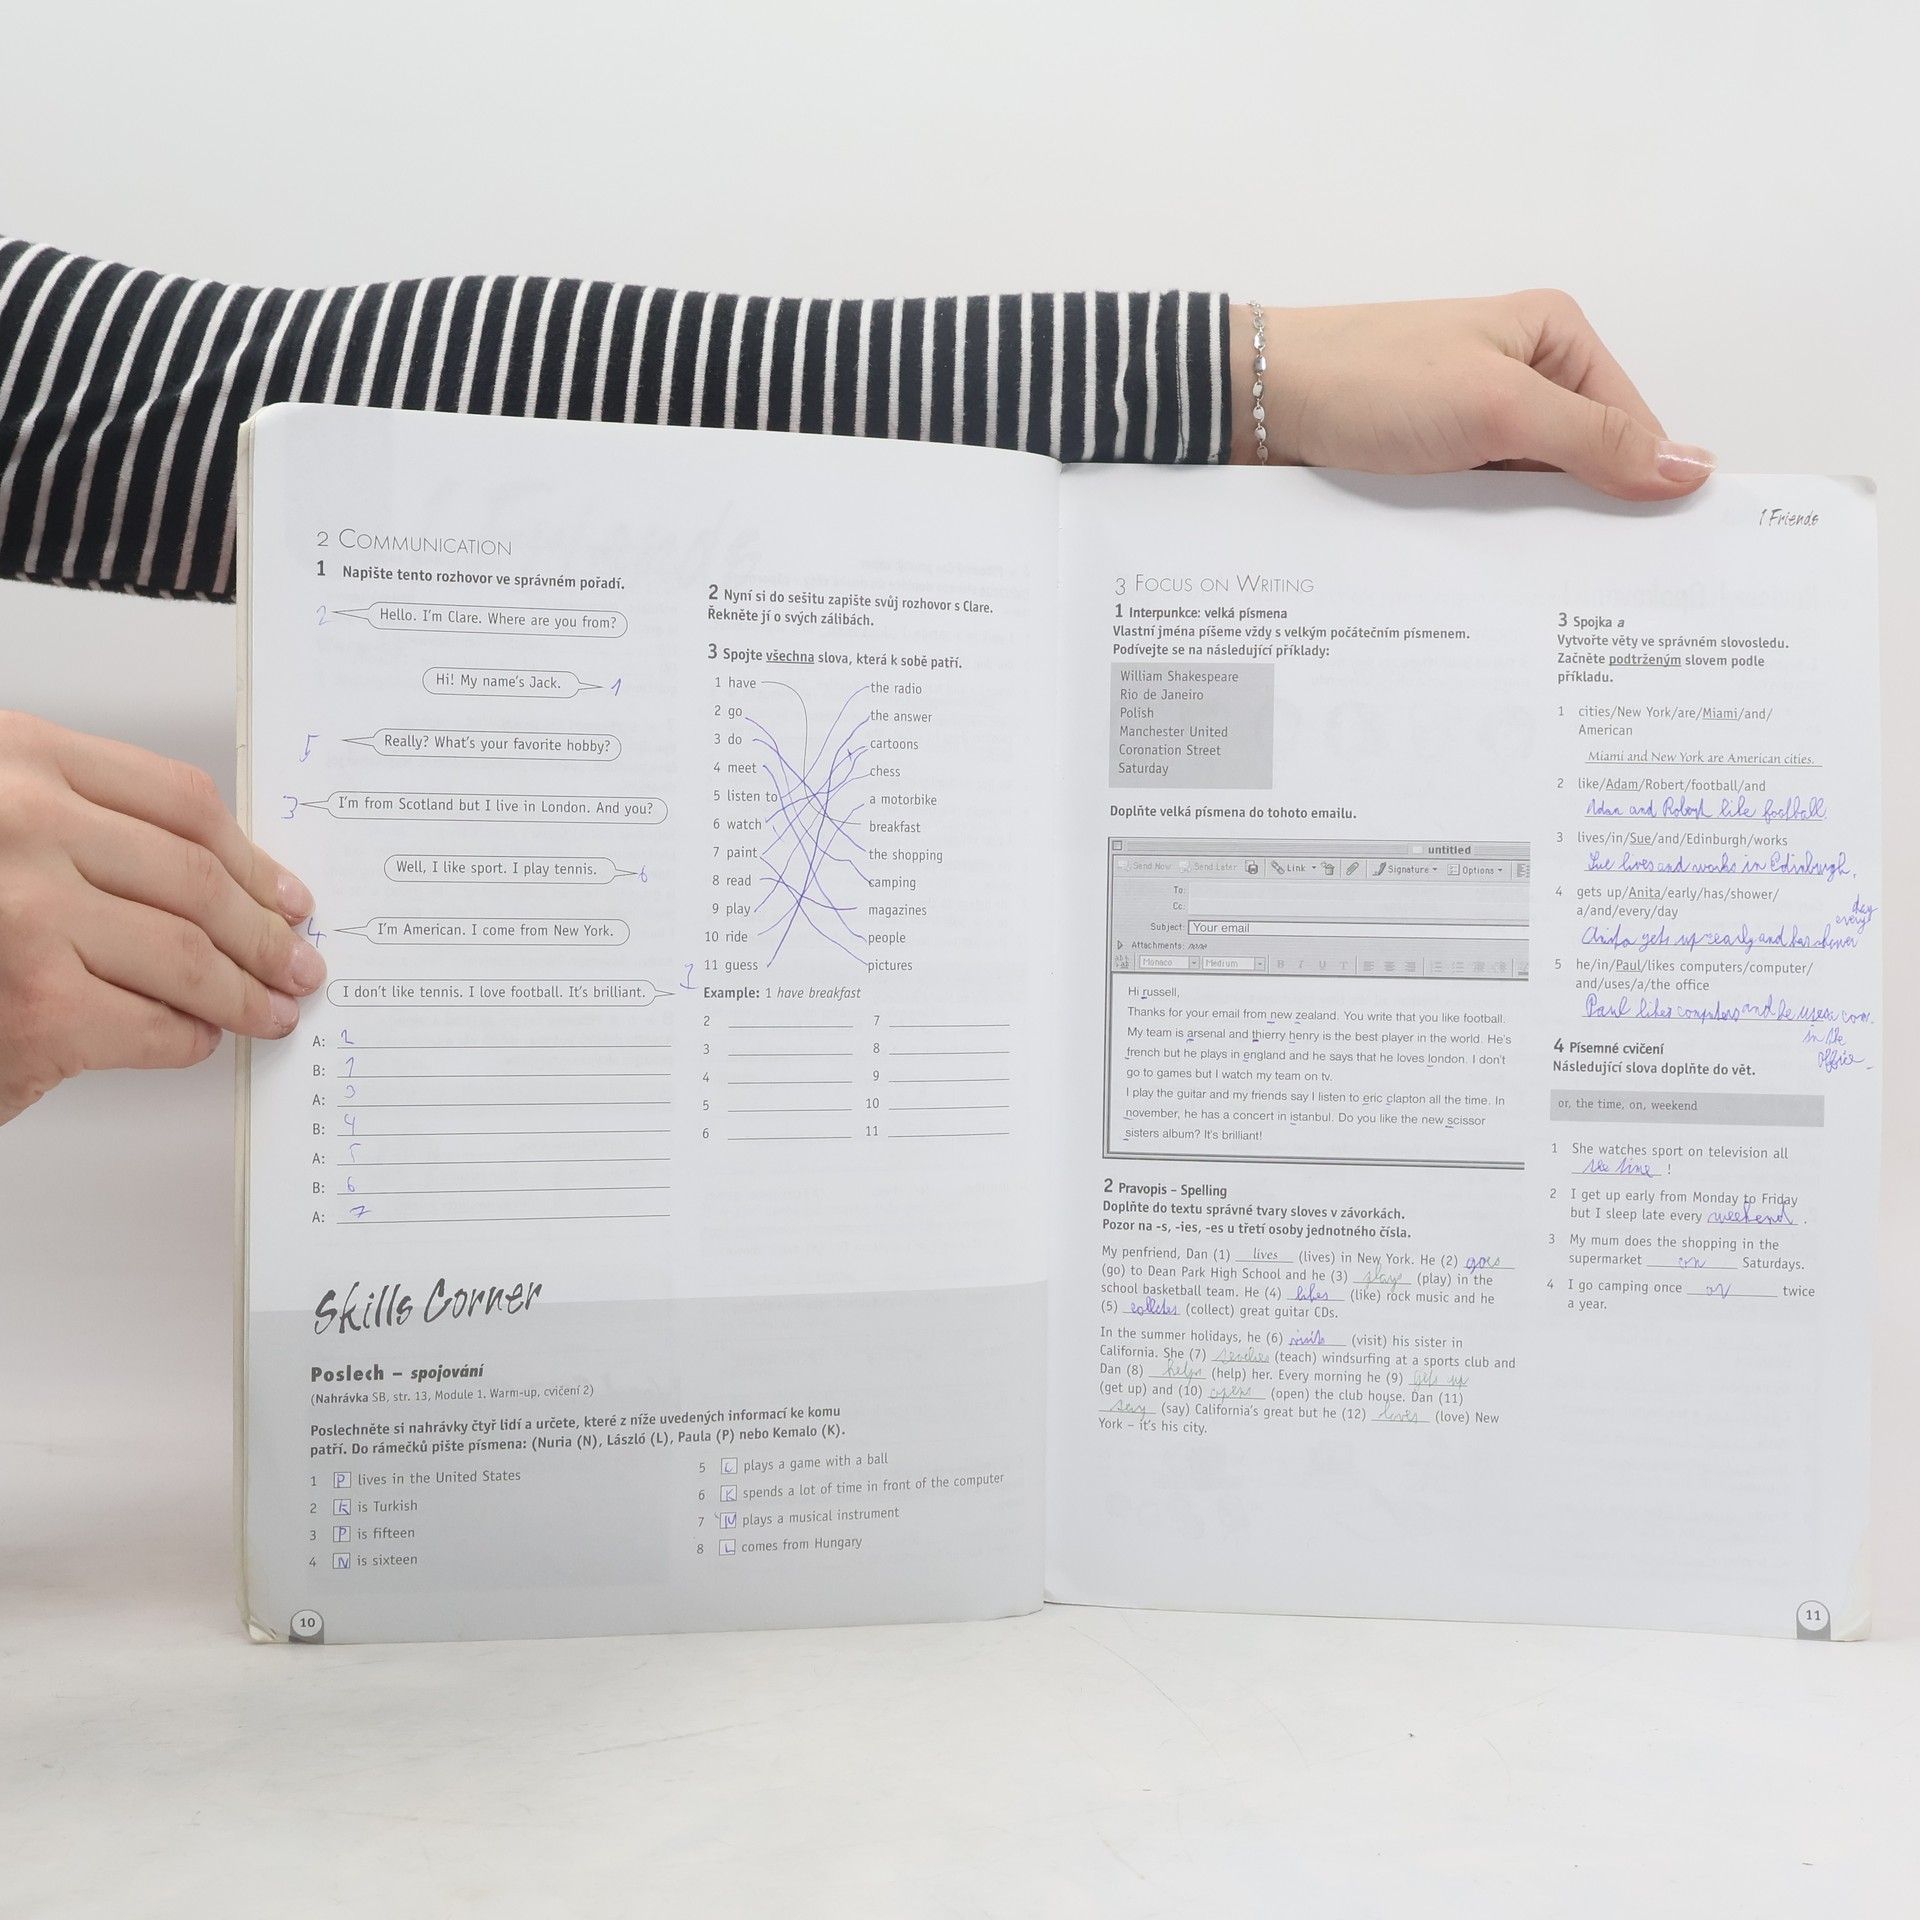 2 COMMUNICATION
1 Napište tento rozhovor ve správném pořadí.
2 Hello. I'm Clare. Where are you from?
Hi! My name's Jack. 1
5 Really? What's your favorite hobby?
3 I'm from Scotland but I live in London. And you?
Well, I like sport. I play tennis. 6
4 I'm American. I come from New York.
I don't like tennis. I love football. It's brilliant.
A: 2
B: 1
A: 3
B: 4
A: 5
B: 6
A: 7
2 Nyní si do sešitu zapište svůj rozhovor s Clare.
Řekněte jí o svých zálibách.
3 Spojte všechna slova, která k sobě patří.
1 have
2 go
3 do
4 meet
5 listen to
6 watch
7 paint
8 read
9 play
10 ride
11 guess
the radio
the answer
cartoons
chess
a motorbike
breakfast
the shopping
camping
magazines
people
pictures
Example: 1 have breakfast
2 7
3 8
4 9
5 10
6 11
Skills Corner
Poslech – spojování
(Nahrávka SB, str. 13, Module 1. Warm-up, cvičení 2)
Poslechněte si nahrávky čtyř lidí a určete, které z níže uvedených informací ke komu
patří. Do rámečků pište písmena: (Nuria (N), László (L), Paula (P) nebo Kemalo (K).
1 P lives in the United States
2 K is Turkish
3 P is fifteen
4 N is sixteen
5 L plays a game with a ball
6 K spends a lot of time in front of the computer
7 N plays a musical instrument
8 L comes from Hungary
10
1 Friends
3 FOCUS ON WRITING
1 Interpunkce: velká písmena
Vlastní jména píšeme vždy s velkým počátečním písmenem.
Podívejte se na následující příklady:
William Shakespeare
Rio de Janeiro
Polish
Manchester United
Coronation Street
Saturday
Doplňte velká písmena do tohoto emailu.
untitled
Send Now Send Later Link Signature Options
To:
Cc:
Subject: Your email
Attachments: none
Monaco Medium B I U T
Hi russell,
Thanks for your email from new zealand. You write that you like football.
My team is arsenal and thierry henry is the best player in the world. He's
french but he plays in england and he says that he loves london. I don't
go to games but I watch my team on tv.
I play the guitar and my friends say I listen to eric clapton all the time. In
november, he has a concert in istanbul. Do you like the new scissor
sisters album? It's brilliant!
2 Pravopis – Spelling
Doplňte do textu správné tvary sloves v závorkách.
Pozor na -s, -ies, -es u třetí osoby jednotného čísla.
My penfriend, Dan (1) lives (lives) in New York. He (2) goes
(go) to Dean Park High School and he (3) plays (play) in the
school basketball team. He (4) likes (like) rock music and he
(5) collectes (collect) great guitar CDs.
In the summer holidays, he (6) visits (visit) his sister in
California. She (7) teaches (teach) windsurfing at a sports club and
Dan (8) helps (help) her. Every morning he (9) gets up
(get up) and (10) opens (open) the club house. Dan (11)
say (say) California's great but he (12) loves (love) New
York – it's his city.
3 Spojka a
Vytvořte věty ve správném slovosledu.
Začněte podtrženým slovem podle
příkladu.
1 cities/New York/are/Miami/and/
American
Miami and New York are American cities.
2 like/Adam/Robert/football/and
Adam and Robert like football.
3 lives/in/Sue/and/Edinburgh/works
Sue lives and works in Edinburgh.
4 gets up/Anita/early/has/shower/
a/and/every/day
day
every
Anita gets up early and has shower
5 he/in/Paul/likes computers/computer/
and/uses/a/the office
Paul likes computers and he uses a com.
in the
office
4 Písemné cvičení
Následující slova doplňte do vět.
or, the time, on, weekend
1 She watches sport on television all
the time !
2 I get up early from Monday to Friday
but I sleep late every weekend .
3 My mum does the shopping in the
supermarket on Saturdays.
4 I go camping once or twice
a year.
11